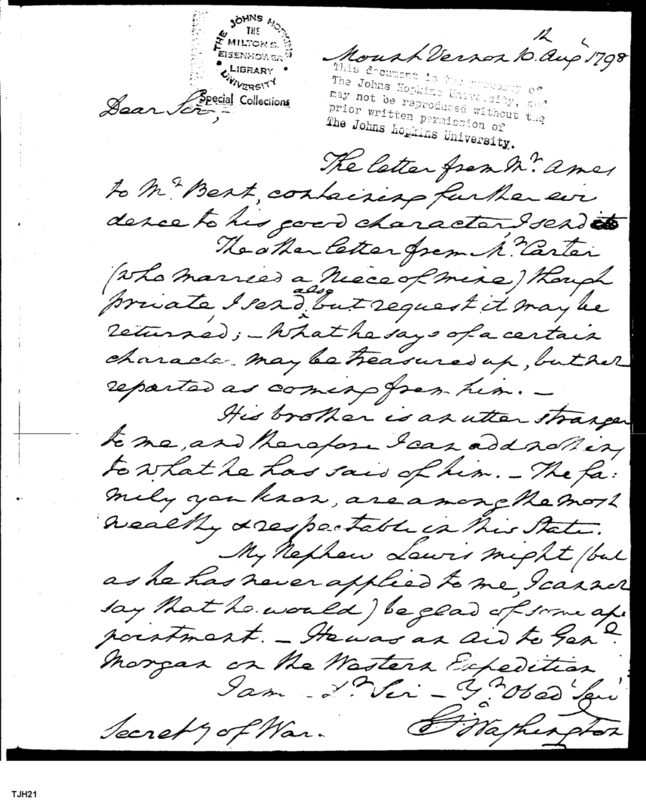 THE JOHNS HOPKINS UNIVERSITY
THE
MILTON S.
EISENHOWER
LIBRARY
Special Collections
Mount Vernon 10th Augt 1798
This document is the property of
The Johns Hopkins University, and
may not be reproduced without the
prior written permission of
The Johns Hopkins University.
Dear Sir,
The letter from Mr. Ames
to Mr. Bent, containing further evi
dence to his good character, I send
The other letter from Mr. Carter
(who married a Niece of mine) though
private, I send also, but request it may be
returned; - What he says of a certain
character may be treasured up, but not
reported as coming from him. -
His brother is an utter stranger
to me, and therefore I can add nothing
to what he has said of him. - The fa:
mily you know, are among the most
wealthy & respectable in this State.
My Nephew Lewis might (but
as he has never applied to me, I cannot
say that he would) be glad of some ap
pointment. - He was an Aid to Genl.
Morgan on the Western Expedition
I am - Dr. Sir - Yr. Obed Serv
Go Washington
Secrety of War.
TJH21